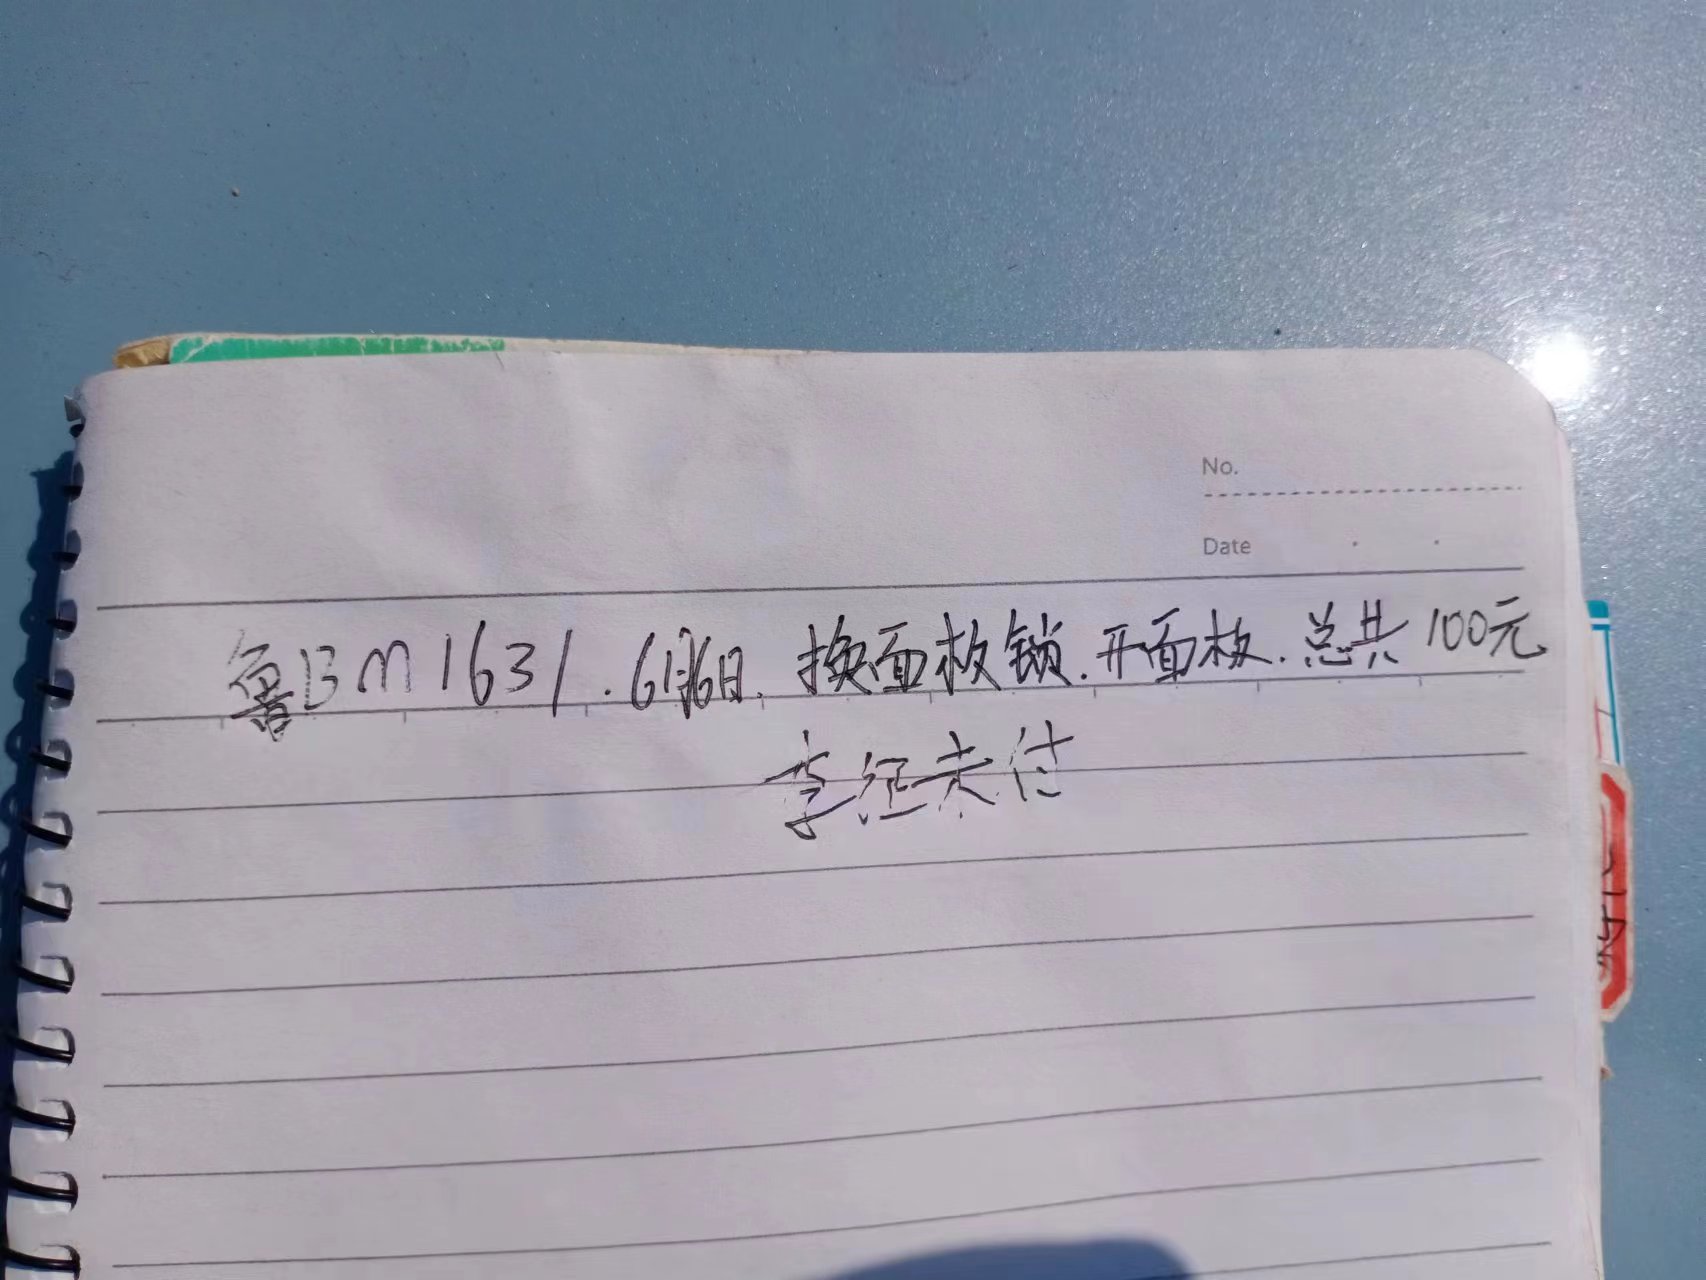 No.
Date
鲁BM1631.6月6日.换面板锁.开面板.总共100元
李征未付